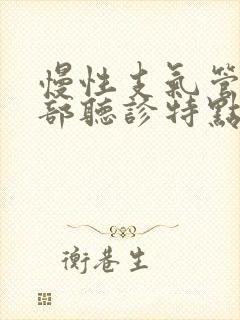 慢性支氣管
部聽診特點
衡巷生